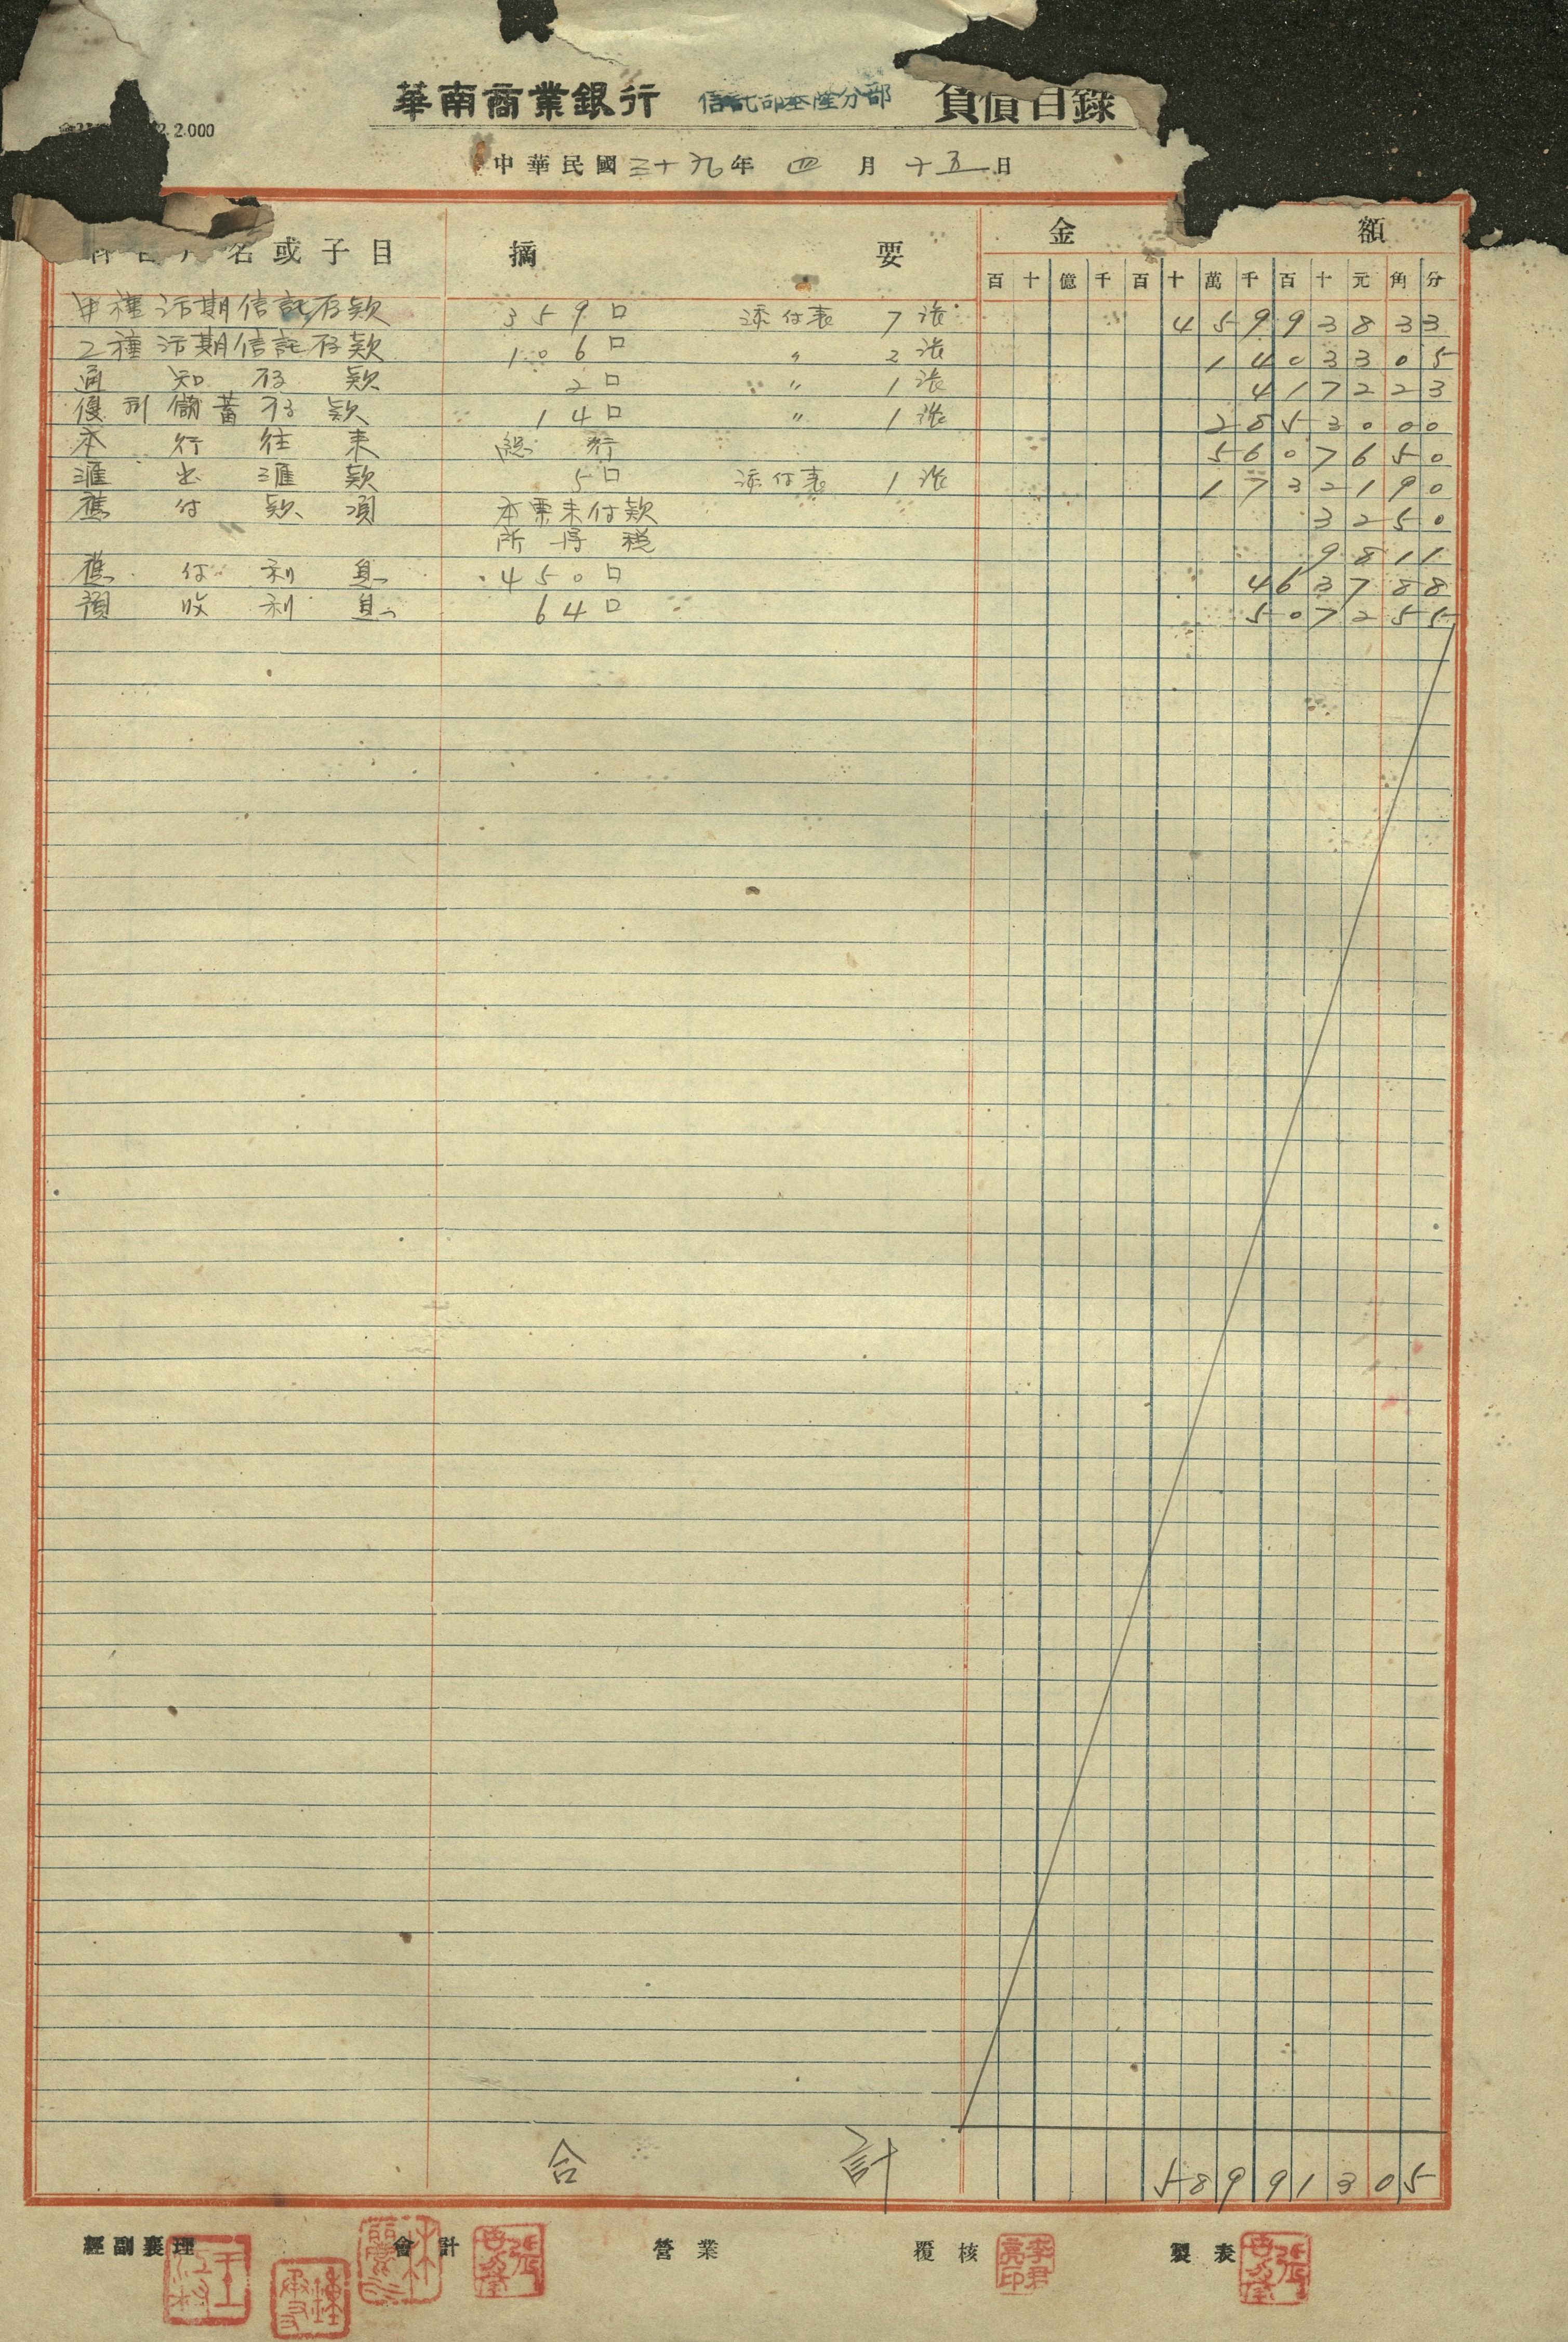 華南商業銀行 信託部基隆分部 負債目錄
2.000
中華民國三十九年四月十五日
名或子目 摘要 金額
百十億千百十萬千百十元角分
甲種活期信託存款 359口 添付表 7張 45993833
乙種活期信託存款 106口 〃 2張 1403305
通知存款 2口 〃 1張 417223
優利儲蓄存款 14口 〃 1張 2853000
本行往来 總行 5607650
滙出滙款 5口 添付表 1張 1732190
應付款項 本票未付款 3250
所得稅 9811
應付利息 450口 463788
預收利息 64口 507255
合計 58991305
經副襄理 會計 營業 覆核 製表